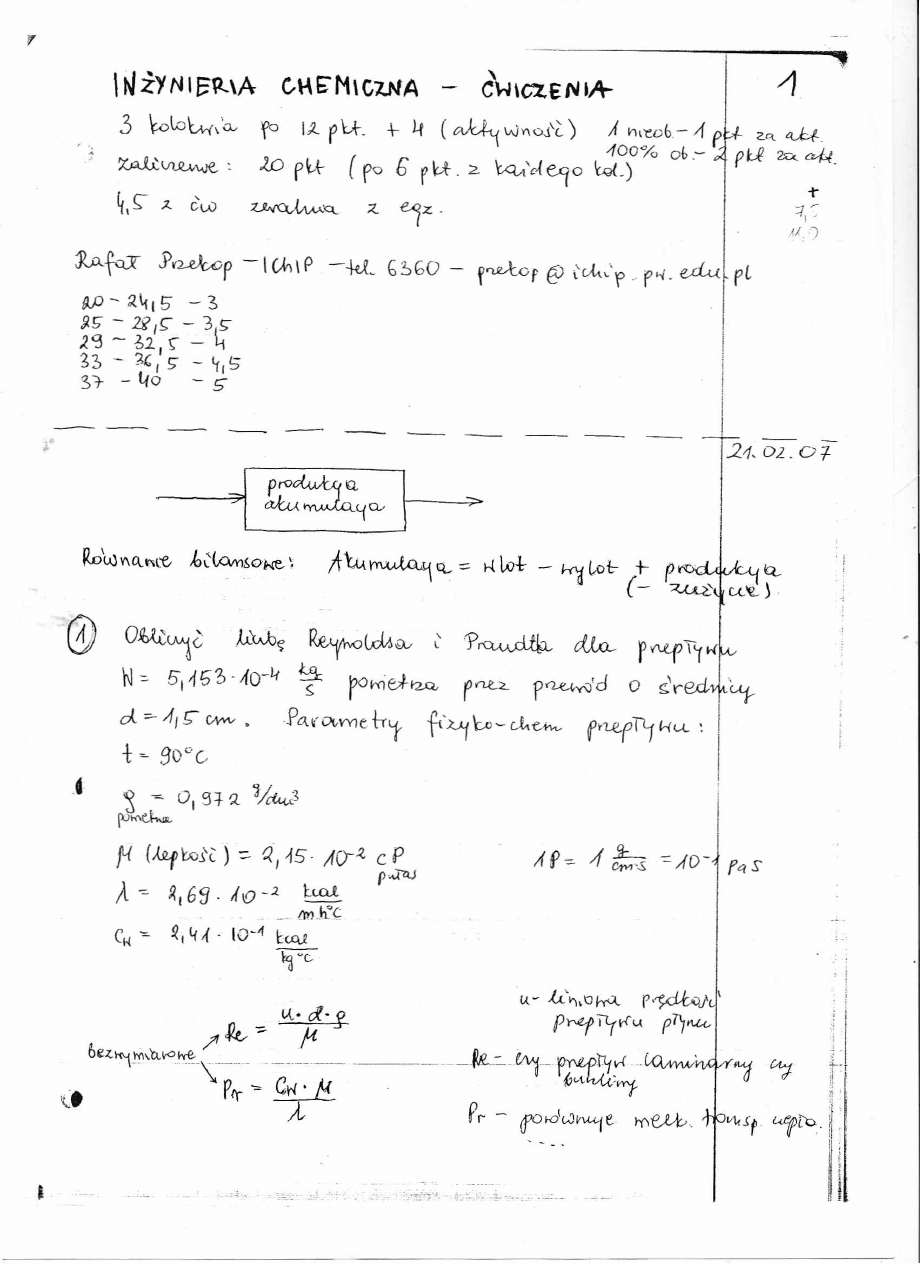 1
INŻYNIERIA CHEMICZNA – ĆWICZENIA
3 kolokwia po 12 pkt. + 4 (aktywność) 1 nieob. – 1 pkt za akt.
100% ob. – 2 pkt za akt.
zaliczenie: 20 pkt (po 6 pkt. z każdego kol.)
4,5 z ćw zwalnia z egz.
+
7,5
Rafał Przekop – IChIP – tel. 6360 – przekop@ichip.pw.edu.pl
20 – 24,5 – 3
25 – 28,5 – 3,5
29 – 32,5 – 4
33 – 36,5 – 4,5
37 – 40 – 5
21.02.07
produkcja
akumulacja
Równanie bilansowe: Akumulacja = wlot – wylot + produkcja
(– zużycie)
① Obliczyć liczbę Reynoldsa i Prandtla dla przepływu
W = 5,153·10⁻⁴ kg/s powietrza przez przewód o średnicy
d = 1,5 cm. Parametry fizyko-chem przepływu:
t = 90°C
ρ = 0,972 g/dm³
powietrza
μ (lepkość) = 2,15·10⁻² cP 1P = 1 g/cm·s = 10⁻¹ Pa s
puas
λ = 2,69·10⁻² kcal/m h °C
Cw = 2,41·10⁻¹ kcal/kg °C
u – liniowa prędkość
przepływu płynu
bezwymiarowe
Re = u·d·ρ/μ
Re – czy przepływ laminarny czy
burzliwy
Pr = Cw·μ/λ
Pr – porównuje mech. transp. ciepła.
....